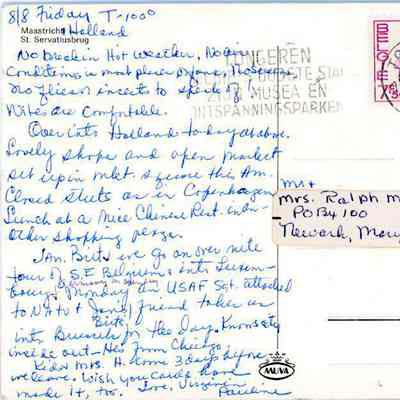 8/8 Friday T-1000
Maastricht Holland
St. Servatiusbrug
No break in Hot Weather, No air
Conditions in most places
no flies or insects to speak of!
Nites are Comfortable.
Over into Holland today as above.
Lovely shops and open market
set up in mkt. square this Am.
Closed streets as in Copenhagen
Lunch at a Nice Chinese Rest. in
other shopping
Jan. Brits we go on over nite
tour of S.E Belgium & into Luxem-
bourg. Monday a USAF Sgt. attached
to NATO & Jans friend takes us
into Brussels for the Day. Knows city
inside out - Hes from Chicago.
Kids & Mrs. H. come 3 days before
we leave. Wish you could have
made it, too. Love, Virginia
Pauline
TONGEREN
OUDSTE STAD
MUSEA EN
ONTSPANNINGSPARKEN
BELGIE
Mr &
Mrs. Ralph M
POB 4100
Newark, Mary
MUVA